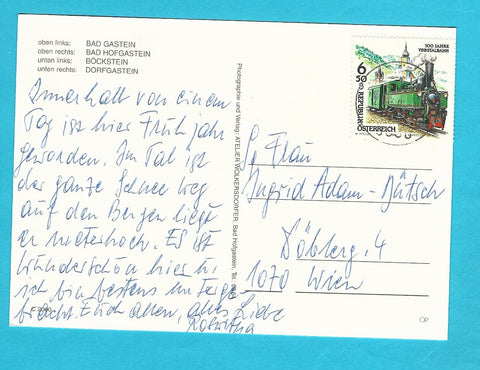 oben links: BAD GASTEIN
oben rechts: BAD HOFGASTEIN
unten links: BÖCKSTEIN
unten rechts: DORFGASTEIN
Innerhalb von einem
Tag ist hier Frühjahr
geworden. Im Tal ist
der ganze Schnee weg
auf den Bergen liegt
er meterhoch. Es ist
wunderschön hier u.
ich bin bestens unterge-
bracht. Euch allen, alles Liebe
Roswitha
Photographie und Verlag: ATELIER WOLKERSDORFER, Bad Hofgastein, Tel.
100 JAHRE
YBBSTALBAHN
6
50
REPUBLIK
ÖSTERREICH
Frau
Ingrid Adam-
4
1070 Wien
OP